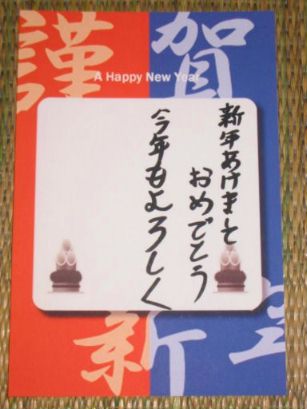 謹賀
新年
A Happy New Year
新年あけまして
おめでとう
今年もよろしく